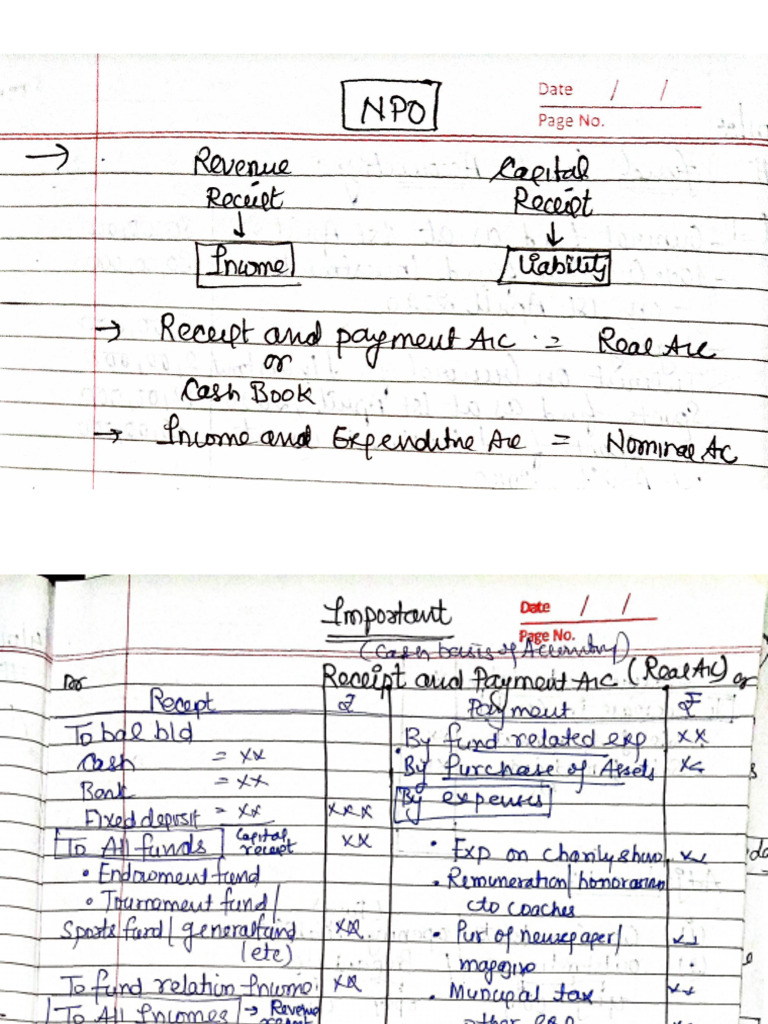 NPO
Date / /
Page No.
→ Revenue Receipt
↓
Income
Capital Receipt
↓
Liability
→ Receipt and payment A/c = Real A/c
or
Cash Book
→ Income and Expenditure A/c = Nominal A/c
Important
Date / /
Page No.
(Cash basis of Accounting)
Dr Receipt and Payment A/c (Real A/c) Cr
Receipt ₹ Payment ₹
To bal b/d
Cash = xx
Bank = xx
Fixed deposit = xx xxx
To All funds Capital receipt xx
• Endowment fund
• Tournament fund/
Sports fund/ general fund xx
(etc)
To fund relation Income xx
To All Incomes → Revenue
By fund related exp xx
By Purchase of Assets xx
By expenses
• Exp on charity show xx
• Remuneration/honorarium
to coaches
• Pur of newspaper/ xx
magazine
• Muncipal tax xx
other exp